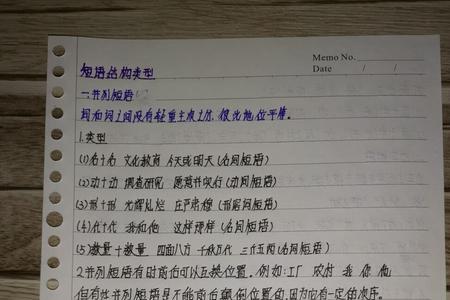 Memo No.
Date / /
短语结构类型
一.并列短语
词和词之间没有轻重主次之分,彼此地位平等。
1.类型
(1)名+名 文化教育 今天或明天(名词短语)
(2)动+动 调查研究 愿意并实行(动词短语)
(3)形+形 光辉灿烂 庄严肃穆(形容词短语)
(4)代+代 我和他 这样那样(名词短语)
(5)数量+数量 四面八方 千秋万代 三斤五两(名词短语)
2.并列短语有时前后可以互换位置.例如:工厂 农村 我 你 他
但有些并列短语是不能前后颠倒位置的,因为它有一定的次序。